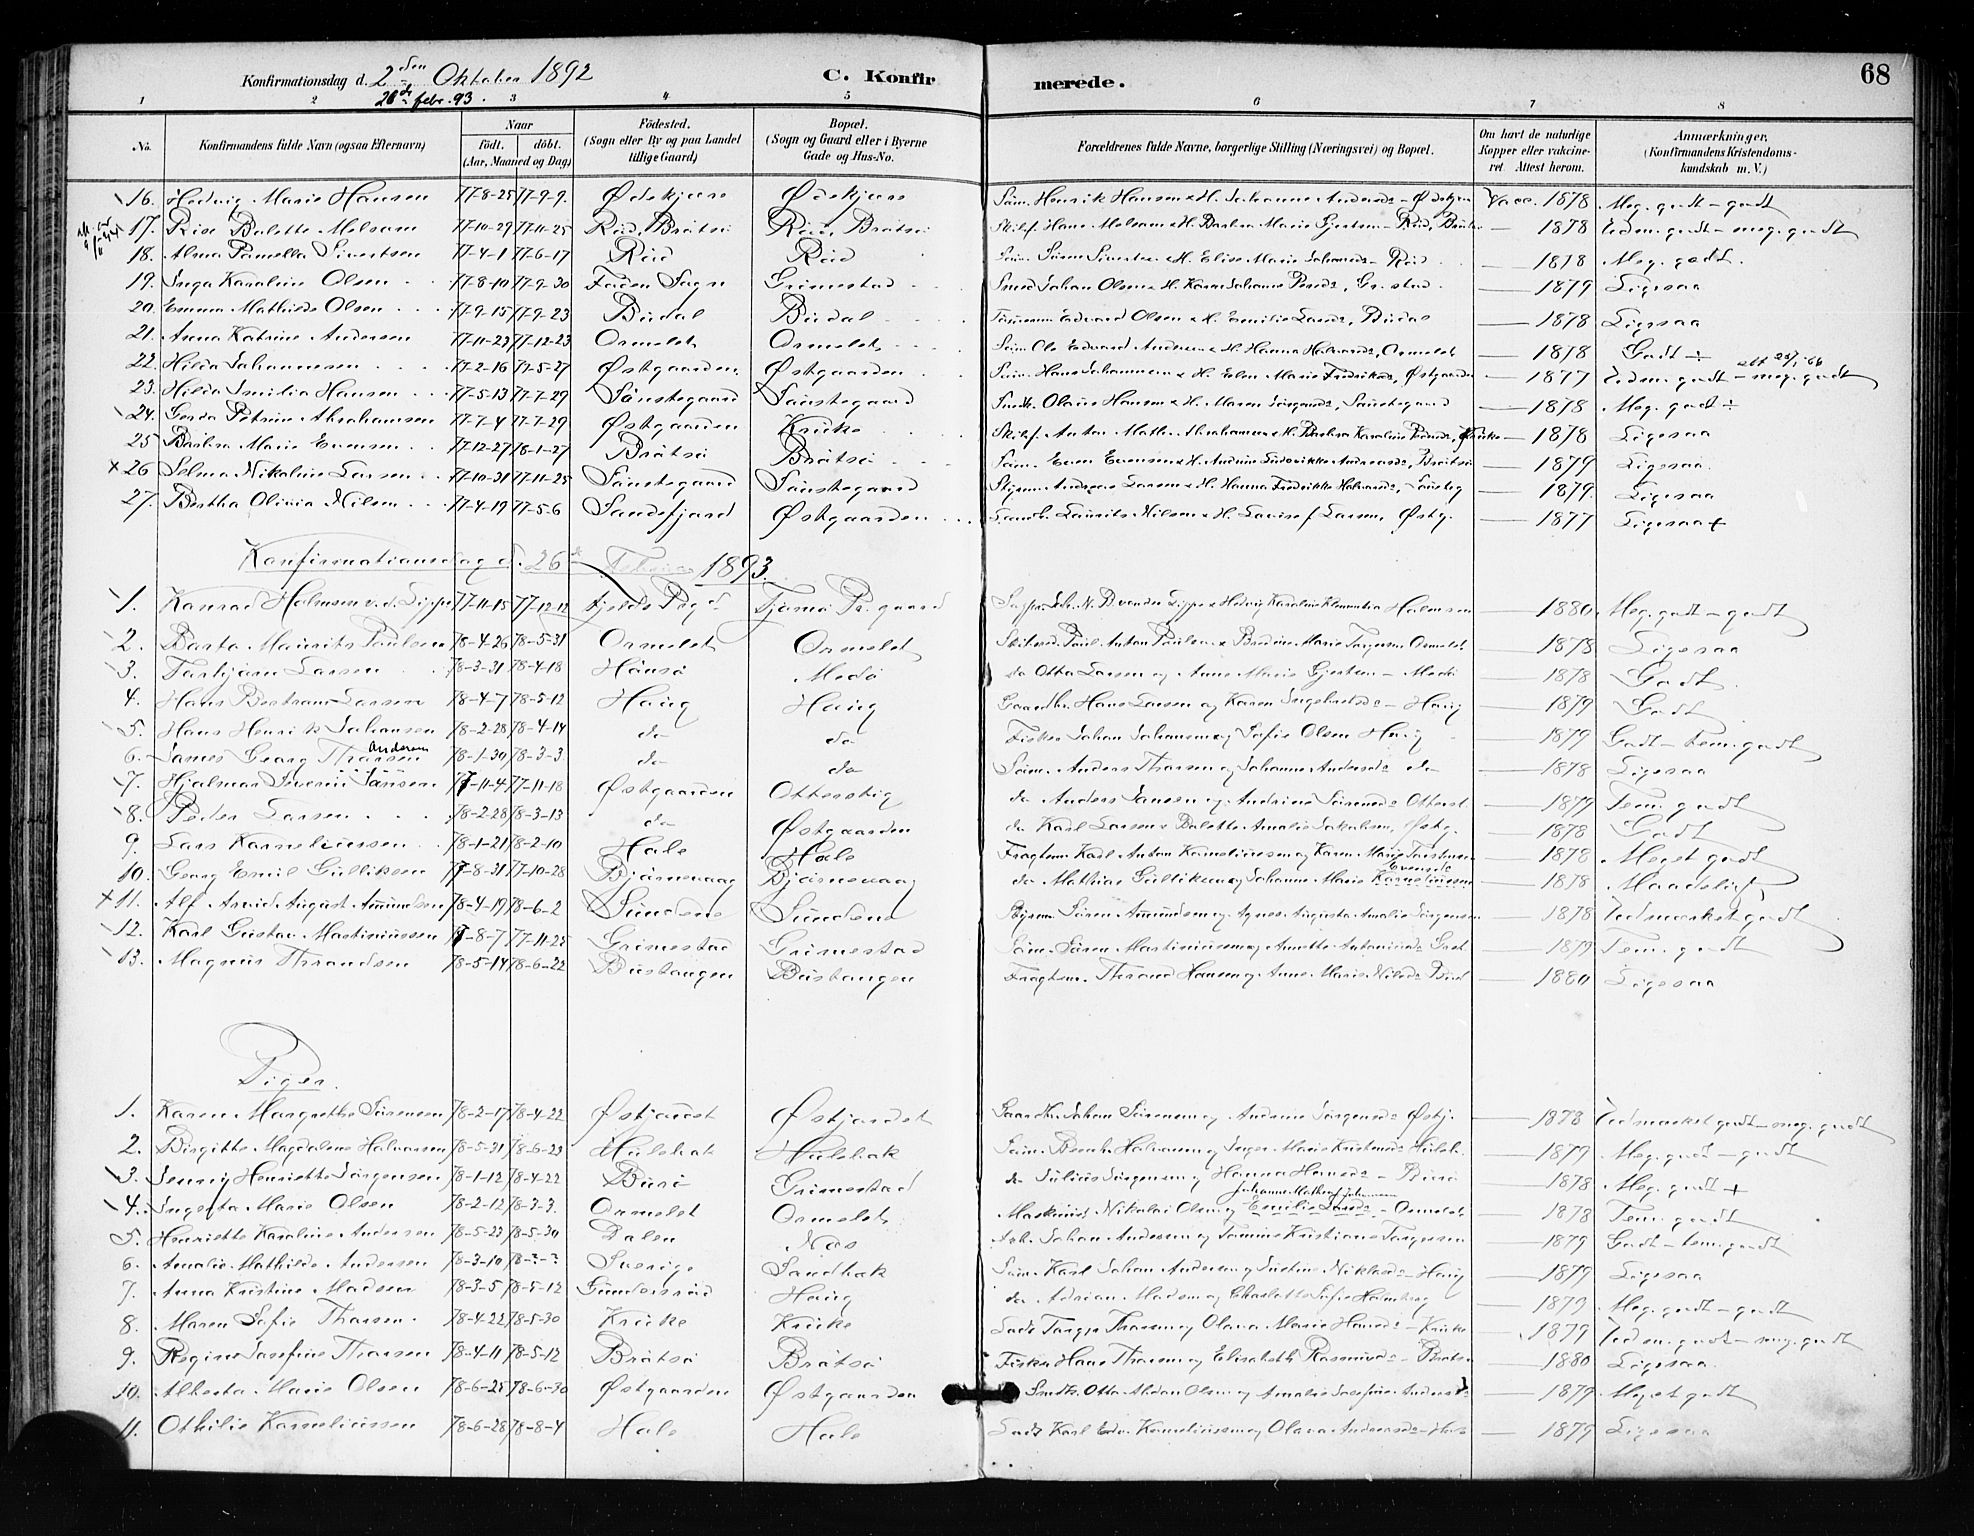 Konfirmationsdag d. 2den Oktober 1892 C. Konfirmerede. 68
26de febr. 93.
1 2 3 4 5 6 7 8
No. Konfirmandens fulde Navn (ogsaa Efternavn) Naar Födt. döbt. (Aar, Maaned og Dag) Födested. (Sogn eller By og paa Landet tillige Gaard) Bopæl. (Sogn og Gaard eller i Byerne Gade og Hus-No. Forældrenes fulde Navne, borgerlige Stilling (Næringsvei) og Bopæl. Om havt de naturlige Kopper eller vakcineret. Attest herom. Anmærkninger, (Konfirmandens Kristendomskundskab m. V.)
16. Hedvig Marie Hansen 77-8-25 77-9-9. Ødekjære Ødekjære Søm. Henrik Hansen & H. Johanne Andersd. Ødekjær Vacc. 1878 Meg. godt - godt
17. Rise Balette Melsom 77-10-29 77-11-25 Röd, Bråtsö Röd, Bråtsö Skibsf. Hans Melsom & H. Barbra Marie Gjertsen - Röd, Bråtsö — 1878 Udm. godt - meg. godt
18. Alma Pamella Sivertsen 77-4-1 77-6-17 Röd Röd Söm. Sören Sivertsen & H. Elise Marie Johannsd. - Röd — 1878 Meg. godt.
19. Inga Karoline Olsen 77-8-10 77-9-30 Föden Sogn Grimestad Smed Johan Olsen & H. Karen Johanne Pedersd., Gr.stad — 1879 Ligesaa
20. Emma Mathilde Olsen 77-9-15 77-9-23 Budal Budal Tömmerm. Edvard Olsen & H. Emilie Larsd., Budal — 1878 Ligesaa
21. Anna Katrine Andersen 77-11-23 77-12-23 Ormelet Ormelet Söm. Ole Edvard Andersen & H. Hanna Halvorsd., Ormelet — 1878 Godt ÷
22. Hilda Johannessen 77-2-16 77-5-27 Østgaarden Østgaarden Söm. Hans Johannesen & H. Elen Marie Fredriksd., Østgaarden — 1877 Udm. godt - meg. godt
23. Hilda Emilia Hansen 77-5-13 77-7-29 Sönstegaard Sönstegaard Smdk. Olaus Hansen & H. Maren Jörgensd., Sönstegaard — 1878 Meg. godt ÷
24. Gerda Petrine Abrahamsen 77-7-4 77-7-29 Østgaarden Kruke Skibsf. Anton Math. Abrahamsen & H. Barbra Karoline Pedersd., Kruke — 1878 Ligesaa
25 Barbra Marie Evensen 77-12-27 78-1-27 Bråtsö Bråtsö Söm. Even Evensen & H. Andrine Ludvikke Andreasd., Bråtsö — 1879 Ligesaa.
x 26 Selma Nikoline Larsen 77-10-31 77-11-25 Sönstegaard Sönstegaard Styrm. Andreas Larsen & H. Hanna Fredrikke Halvorsd., Sönsteg — 1879 Ligesaa
27. Bertha Olivia Nilsen 77-4-19 77-5-6 Sandefjord Østgaarden Laurits Nilsen & H. Lovise Larsen, Østg. — 1877 Ligesaa +
Konfirmationsdag d. 26de Februar 1893.
1. Konrad Holmsen v.d. Lippe 77-11-15 77-12-12 Tjömö Pr.gaard N. B. v. der Lippe & Hedvig Karoline Klementia Holmsen — 1880 Meg. godt - godt
2. Barto Maurits Paulsen 78-4-26 78-5-31 Ormelet Ormelet Paul Anton Paulsen & Bredine Marie Torgersen Ormelet — 1878 Ligesaa
3. Torbjörn Larsen 78-3-31 78-4-18 Hönsö Medö do Otto Larsen og Anne Marie Gjertsen - Medö — 1878 Godt
4. Hans Bertram Larsen 78-4-7 78-5-12 Haug Haug Gaardbr. Hans Larsen og Karen Ingebretsd. - Haug — 1879 Godt
5. Hans Henrik Johansen 78-2-28 78-4-14 do do Fisker Johan Johansen og Sofie Olsen Haug — 1879 Godt - tem. godt
6. James Georg Thorsen Andersen 78-1-30 78-3-3 do do Söm. Anders Thorsen og Johanne Andersd. do — 1878 Ligesaa
7. Hjalmar Severin Jansen 77-11-4 77-11-18 Østgaarden Ottersteg do Anders Jansen og Andrine Sörensd. Otterst. — 1879 Tem. godt
8. Peder Larsen 78-2-28 78-3-13 do Østgaarden do Karl Larsen & Balette Amalie Jakobsen, Østg. — 1878 Godt
9. Lars Korneliussen 78-1-21 78-2-10 Hole Hole Fragtem. Karl Anton Korneliussen og Karen Marie Torstensen — 1878 Meget godt
10. Georg Emil Gulliksen 77-8-31 77-10-28 Bjørnevaag Bjørnevaag do Mathias Gulliksen og Johanne Marie Korneliussen Evensd. — 1878 Maadelig
x 11. Alf Arvid August Amundsen 78-4-19 78-6-2 Sundene Sundene Styrm. Sören Amundsen og Agnes Augusta Amalie Jörgensen — 1878 Udmærket godt
12. Karl Gustav Martiniussen 77-8-7 77-11-25 Grimestad Grimestad Söm. Sören Martiniussen og Anette Antoniusd. Grst. — 1879 Tem. godt
13. Magnus Throndsen 78-5-14 78-6-22 Bustangen Bustangen Fragtem. Thrond Hansen og Anne Marie Nilsd. Bust — 1880 Ligesaa
Piger.
1. Karen Margrethe Sörensen 78-2-17 78-4-22 Østjordet Østjordet Gaardbr. Johan Sörensen og Andrine Jörgensd. Østj. — 1878 Udmærket godt - meg. godt
2. Birgitte Magdalene Halvorsen 78-5-31 78-6-23 Holebak Holebak Söm. Bernh. Halvorsen og Inger Marie Kristensd. Holeb. — 1879 Meg. godt - godt
3. Jenny Henriette Jörgensen 78-1-12 78-4-22 Burö Grimestad do Julius Jörgensen og Hanna Hansd. - Burö — 1878 Meg. godt +
4. Ingerta Marie Olsen 78-2-12 78-3-3. Ormelet Ormelet Maskinist Nikolai Olsen og Emilie Larsd. - Ormelet — 1878 Tem. godt
5. Henriette Karoline Andersen 78-5-23 78-5-30 Dalen Næs Johan Andersen og Tomine Kristiane Torgersen — 1879 Godt - tem. godt
6. Amalie Mathilde Andersen 78-3-10 78-?-? Sverige Sandbak Söm. Karl Johan Andersen og Justine Niklasd. - Haug — 1879 Ligesaa
7. Anna Kristine Madsen 78-3-5 78-5-12 Gundersröd Haug do Adrian Madsen og Charlotte Sofie Holmberg — 1879 Meg. godt - godt
8. Maren Sofie Thorsen 78-4-22 78-5-30 Kruke Kruke Lods Torger Thorsen og Olava Marie Hansd. - Kruke — 1879 Udm. godt - meg. godt
9. Regine Josefine Thorsen 78-4-11 78-5-12 Bråtsö Bråtsö Fisker Hans Thorsen og Elisabeth Rasmusd. - Bråtsö — 1880 Ligesaa
10. Alberta Marie Olsen 78-6-25 78-6-30 Østgaarden Østgaarden Smdk. Otto Aldan Olsen og Amalie Josefine Andersd. — 1879 Meget godt
11. Othilie Korneliussen 78-6-28 78-8-4 Hole Hole Lods Karl Edv. Korneliussen og Olava Andersd. - Hole — 1879 Ligesaa